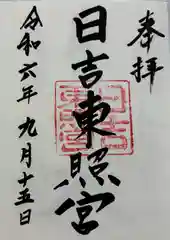 奉拝
日吉東照宮
令和六年九月十五日